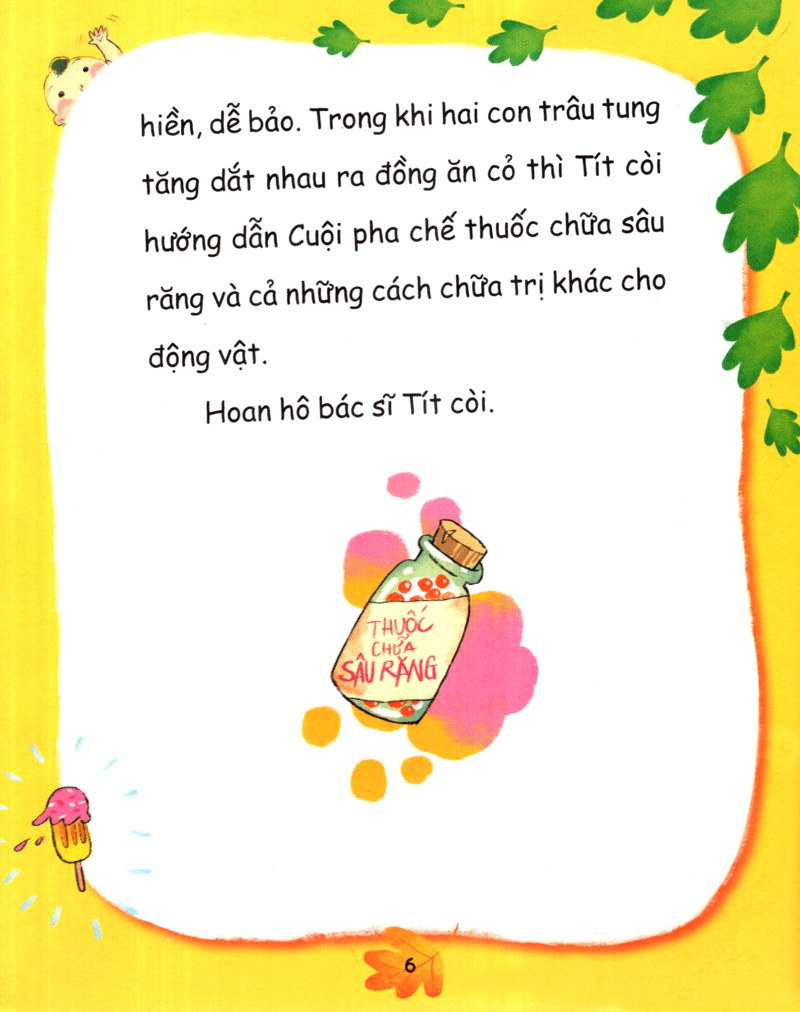 hiền, dễ bảo. Trong khi hai con trâu tung
tăng dắt nhau ra đồng ăn cỏ thì Tít còi
hướng dẫn Cuội pha chế thuốc chữa sâu
răng và cả những cách chữa trị khác cho
động vật.
Hoan hô bác sĩ Tít còi.
THUỐC
CHỮA
SÂU RĂNG
6